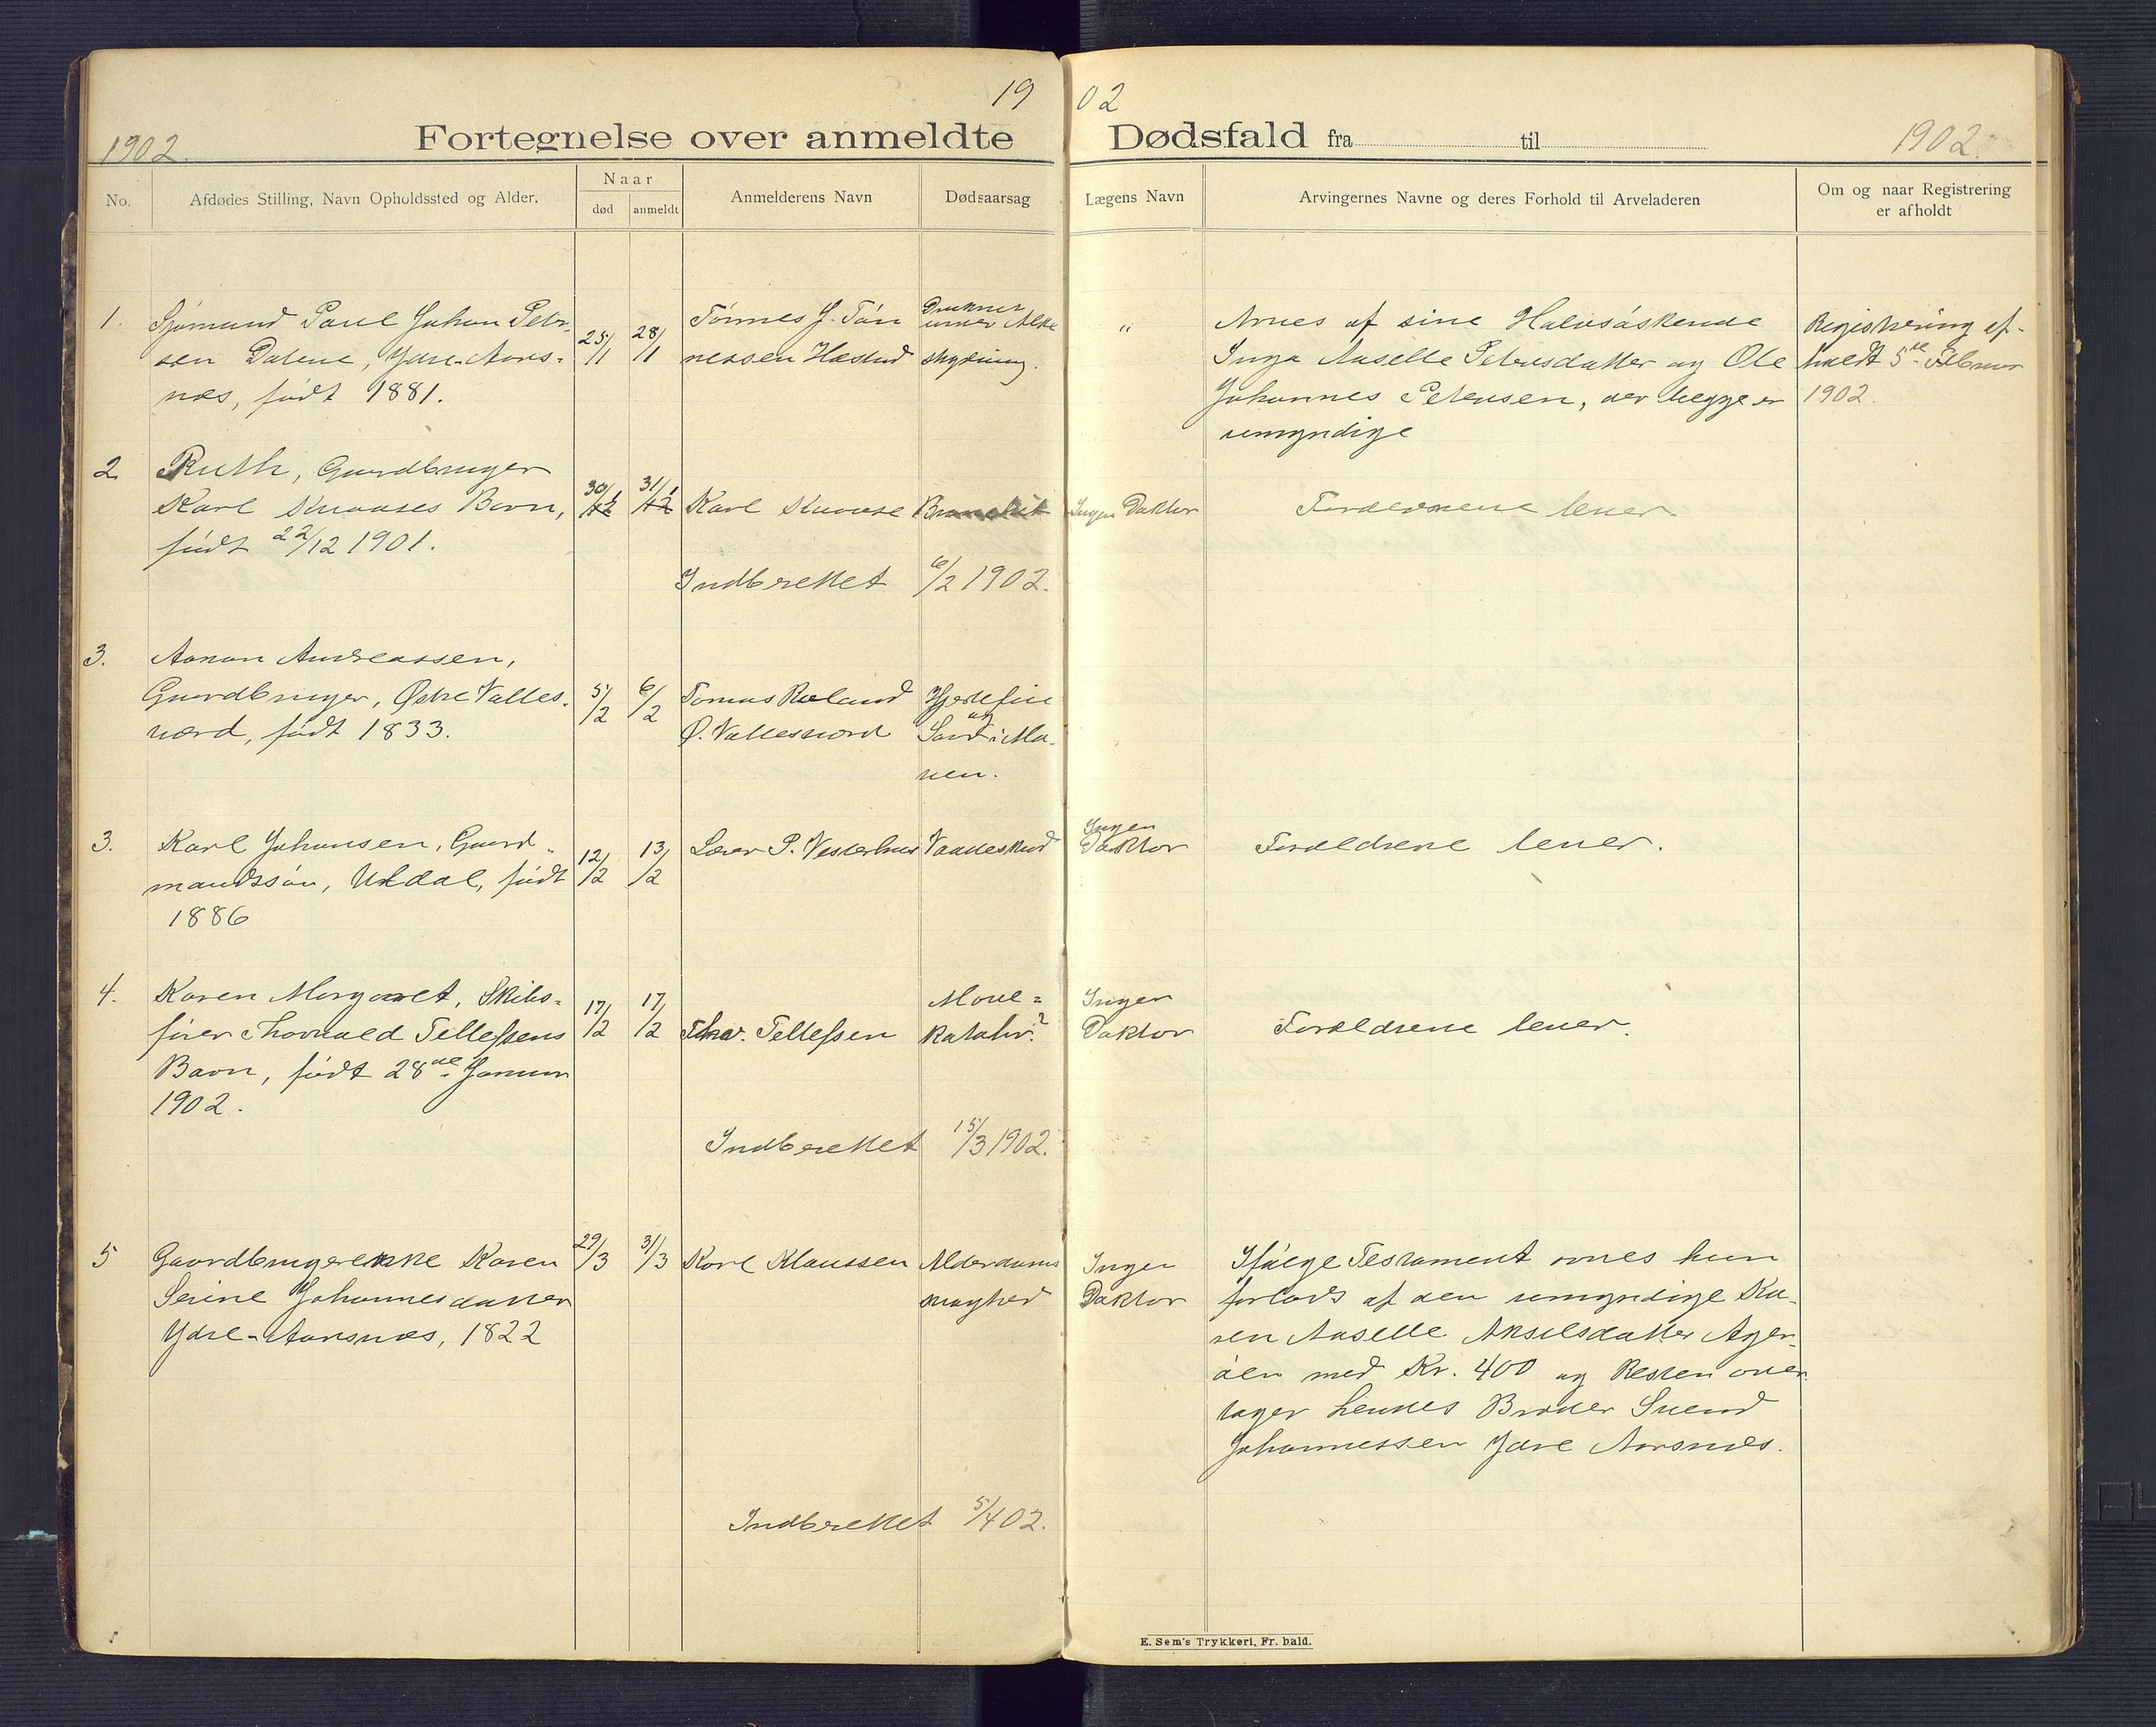 19 02
1902. Fortegnelse over anmeldte Dødsfald fra til 1902.
No. Afdødes Stilling, Navn Opholdssted og Alder. Naar død anmeldt Anmelderens Navn Dødsaarsag Lægens Navn Arvingernes Navne og deres Forhold til Arveladeren Om og naar Registrering er afholdt
1. Sjømand Paul Johan Peter-
sen Dalene, Ydre-Aars-
nes, født 1881.
25/1 28/1
Tønnes J. Tøn
nessen Hæstad
Drukner
under Alke
skydning.
"
Arves af sine Halvsøskende
Inga Aaselle Petersdatter og Ole
Johannes Petersen, der begge er
umyndige
Registrering af-
holdt 5te Februar
1902.
2. Ruth, Gaardbruger
Karl Knauses Barn,
født 22/12 1901.
30/1 31/1
Karl Knause
Ingen Doktor
Forældrene lever.
Indberettet 6/2 1902.
3. Aanon Andreassen,
Gaardbruger, Østre Valles-
værd, født 1833.
5/2 6/2
Tomas Røland
Ø. Vallesværd
Hjertefeil
og
Saar i Ma-
ven.
3. Karl Johansen, Gaard-
mandssøn, Uldal, født
1886
12/2 13/2
Lærer P. Vesterhus
Vaadeskud
Ingen
Doktor
Forældrene lever.
4. Karen Margaret, Skibs-
fører Thorvald Tellefsens
Barn, født 28de Januar
1902.
17/2 17/2
Thv. Tellefsen
Mave-
katahr?
Ingen
Doktor
Forældrene lever.
Indberettet 15/3 1902.
5 Gaardbrugerenke Karen
Serine Johannesdatter
Ydre-Aarsnes, 1822
29/3 31/3
Karl Klaussen
Alderdoms
svaghed
Ingen
Doktor
Ifølge Testament arves hun
forlods af den umyndige Ka-
ren Aaselle Akselsdatter Ager-
øen med Kr. 400 og Resten over-
tager hendes Broder Svend
Johannessen Ydre Aarsnes.
Indberettet 5/4 02.
E. Sem's Trykkeri, Fr. hald.